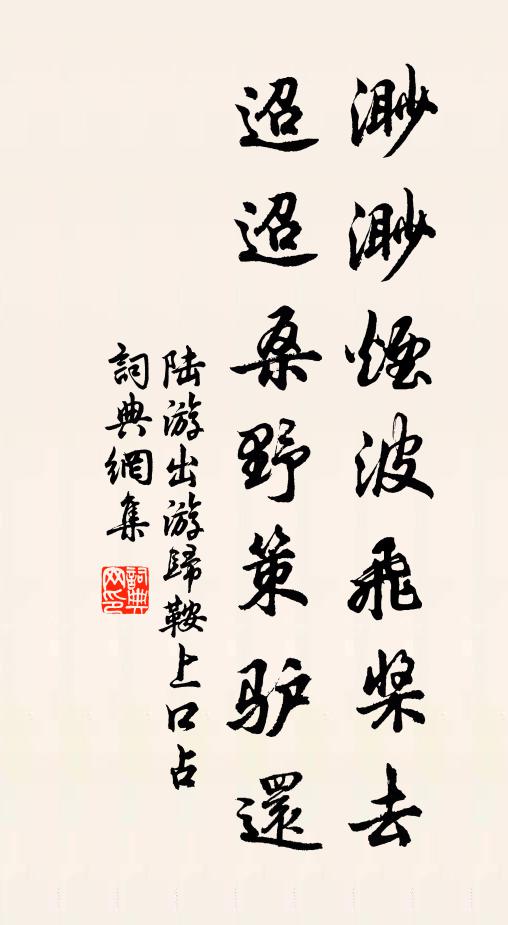 渺渺煙波飛桨去
迢迢桑野策驴還
陆游出游歸鞍上口占
詞典網集
詞典网印